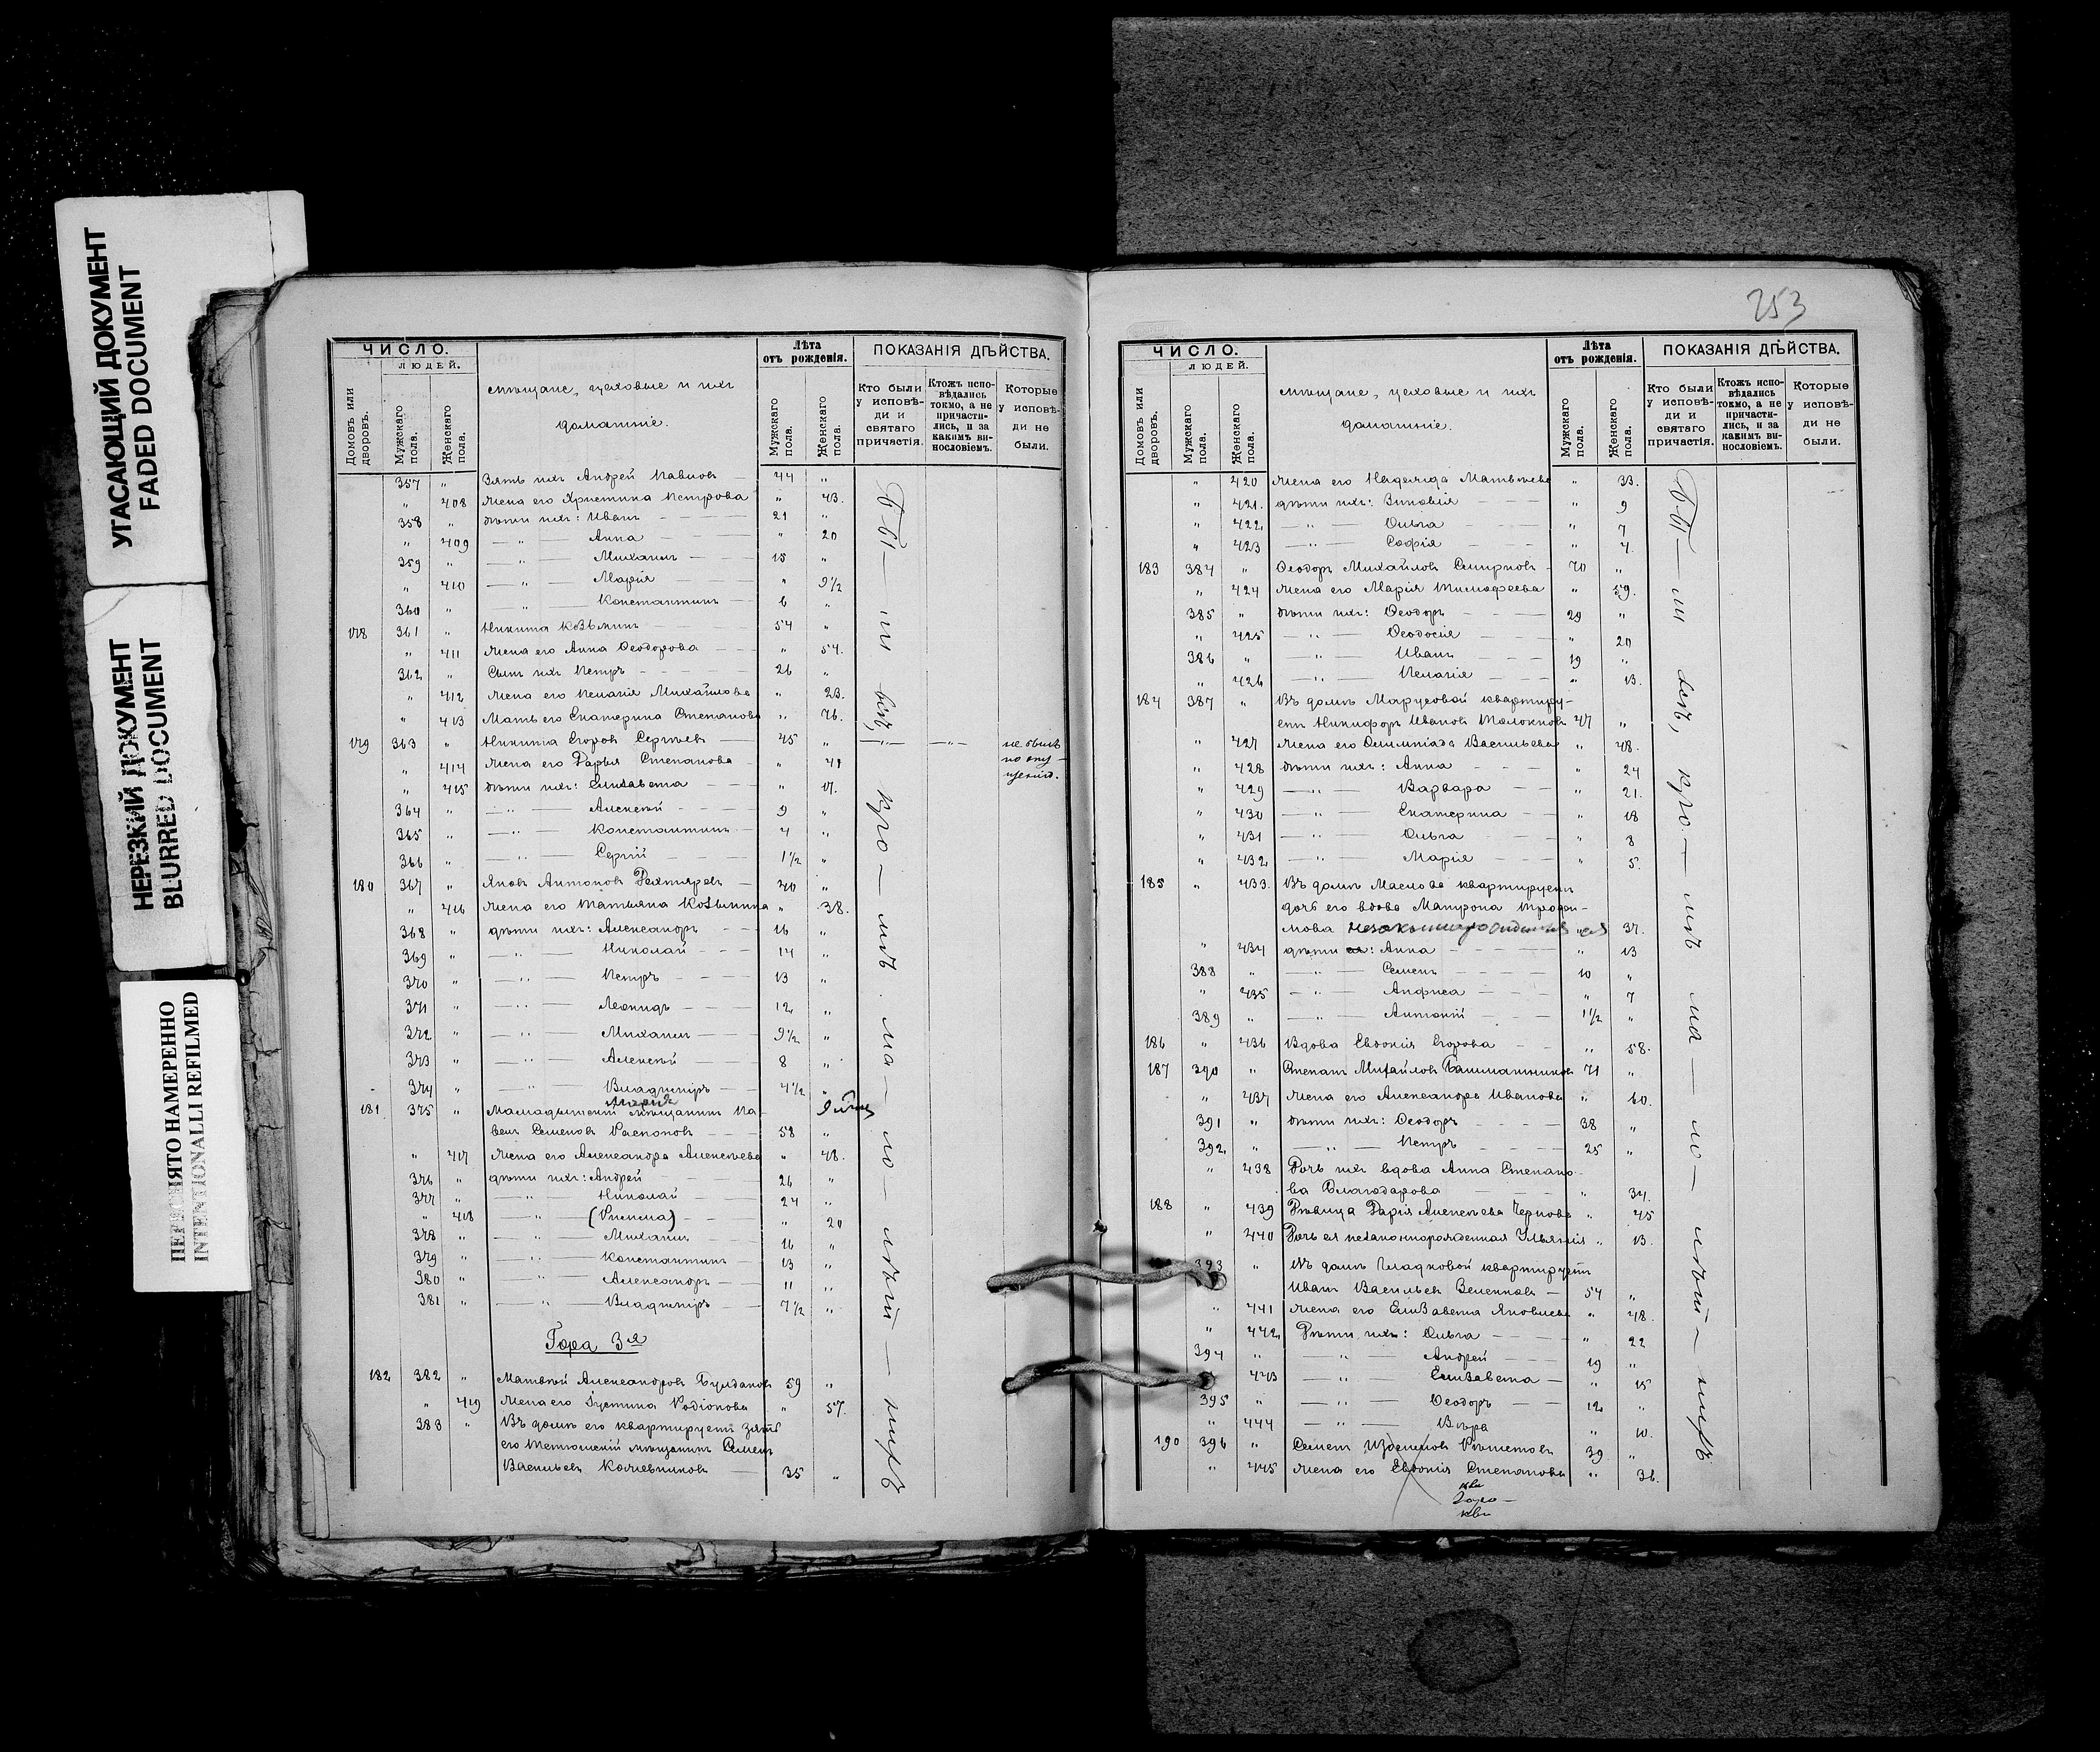 УГАСАЮЩИЙ ДОКУМЕНТ
FADED DOCUMENT
НЕРЕЗКИЙ ДОКУМЕНТ
BLURRED DOCUMENT
ПЕРЕСНЯТО НАМЕРЕННО
INTENTIONALLI REFILMED
ЧИСЛО.
ЛЮДЕЙ.
Домовъ или дворовъ.
Мужскаго пола.
Женскаго пола.
мѣщане, цеховые и ихъ
домашніе.
Лѣта отъ рожденія.
Мужскаго пола.
Женскаго пола.
ПОКАЗАНІЯ ДѢЙСТВА.
Кто были у исповѣди и святаго причастія.
Ктожъ исповѣдались токмо, а не причастились, и за какимъ винословіемъ.
Которые у исповѣди не были.
357 " Зять ихъ Андрей Павловъ — 44 "
" 408 Жена его Христина Петрова " 43.
358 " Дѣти ихъ: Иванъ — 21 "
" 409 — " — Анна — " 20
359 " — " — Михаилъ — 15 "
" 410 — " — Марія " 9½
360 " — " — Константинъ — 6 "
178 361 " Никита Козьминъ — 54 "
" 411 Жена его Анна Ѳеодорова — " 54.
362 " Сынъ ихъ Петръ — 26 "
" 412 Жена его Пелагія Михайлова " 23.
" 413 Мать его Екатерина Степанова " 76.
179 363 " Никита Егоровъ Сергѣевъ — 45 " — " — не былъ
" 414 Жена его Дарья Степанова — " 41 по опу-
" 415 Дѣти ихъ: Елизавета — " 17. щенію.
364 " — " — Алексѣй — 9 "
365 " — " — Константинъ — 4 "
366 " — " — Сергій — 1½ "
180 367 " Яковъ Антоновъ Дехтяревъ — 40 "
" 416 Жена его Татьяна Козьмина " 38.
368 " дѣти ихъ: Александръ — 16 "
369 " — " — Николай — 14 "
370 " — " — Петръ — 13 "
371 " — " — Леонидъ — 12 "
372 " — " — Михаилъ — 9½ "
373 " — " — Алексѣй 8 "
374 " — " — Владиміръ — 4½ "
Марія
181 375 " Мамадышскій мѣщанинъ Па-
велъ Семеновъ Распоповъ — 58 "
" 417 Жена его Александра Алексѣева " 48.
376 " дѣти ихъ: Андрей — 26 "
377 " — " — Николай — 24 "
" 418 — " — — " 20
378 " — " — Михаилъ — 16 "
379 " — " — Константинъ — 13 "
380 " — " — Александръ — 11 "
381 " — " — Владиміръ — 7½ "
Гора 3я
182 382 " Матвѣй Александровъ Булдаковъ 59 "
" 419 Жена его Іустина Родіонова " 57.
383 " Въ домѣ его квартируетъ зять
его Тетюшскій мѣщанинъ Семенъ
Васильевъ Кожевниковъ — 35 "
Бы — ли всѣ, кро — мѣ ма — ло — лѣт — нихъ
253
ЧИСЛО.
ЛЮДЕЙ.
Домовъ или дворовъ.
Мужскаго пола.
Женскаго пола.
мѣщане, цеховые и ихъ
домашніе.
Лѣта отъ рожденія.
Мужскаго пола.
Женскаго пола.
ПОКАЗАНІЯ ДѢЙСТВА.
Кто были у исповѣди и святаго причастія.
Ктожъ исповѣдались токмо, а не причастились, и за какимъ винословіемъ.
Которые у исповѣди не были.
" 420 Жена его Надежда Матвѣева " 33.
" 421. дѣти ихъ: Зиновія — " 9
" 422 — " — Ольга — " 7
" 423 — " — Софія — " 4.
183 384 " Ѳеодоръ Михайловъ Смирновъ — 70 "
" 424 Жена его Марія Тимофеева " 59.
385 " Дѣти ихъ: Ѳеодоръ — 29 "
" 425 — " — Ѳеодосія — " 20
386 " — " — Иванъ — 19 "
" 426 — " — Пелагія — " 13.
184 387 " Въ домѣ Марусовой квартиру-
етъ Никифоръ Ивановъ Толокновъ 47 "
" 427 Жена его Олимпіада Васильева " 48.
" 428 дѣти ихъ: Анна — " 24
" 429 — " — Варвара — " 21.
" 430 — " — Екатерина — " 18
" 431 — " — Ольга — " 8
" 432 — " — Марія — " 5.
185 " 433. Въ домѣ Маслова квартируетъ
дочь его вдова Матрона Трофи-
мова " 37.
" 434 дѣти ея: Анна — " 13
388 " — " — Семенъ — 10 "
" 435 — " — Анфиса — " 7
389 " — " — Антоній — 1½ "
186 " 436 Вдова Евдокія Егорова — " 58.
187 390 " Степанъ Михайловъ Башмашниковъ 71 "
" 437 Жена его Александра Иванова " 60.
391 " Дѣти ихъ: Ѳеодоръ — 38 "
392 " — " — Петръ — 25 "
" 438 Дочь ихъ вдова Анна Степано-
ва Благодарова — " 34.
188 " 439 Дѣвица Дарія Алексѣева Чернова " 45
" 440 Дочь ея незаконнорожденная Ульянія " 13.
393 " Въ домѣ Гладковой квартируетъ
Иванъ Васильевъ Зеленковъ — 54 "
" 441 Жена его Елизавета Яковлева " 48.
" 442 Дѣти ихъ: Ольга — " 22
394 " — " — Андрей — 19 "
" 443 — " — Елизавета — " 15
395 " — " — Ѳеодоръ — 12 "
" 444 — " — Вѣра " 10.
190 396 " Семенъ Рѣшетовъ 39 "
" 445 Жена его Евдокія Степанова " 36.
Бы — ли всѣ, кро — мѣ ма — ло — лѣт — нихъ